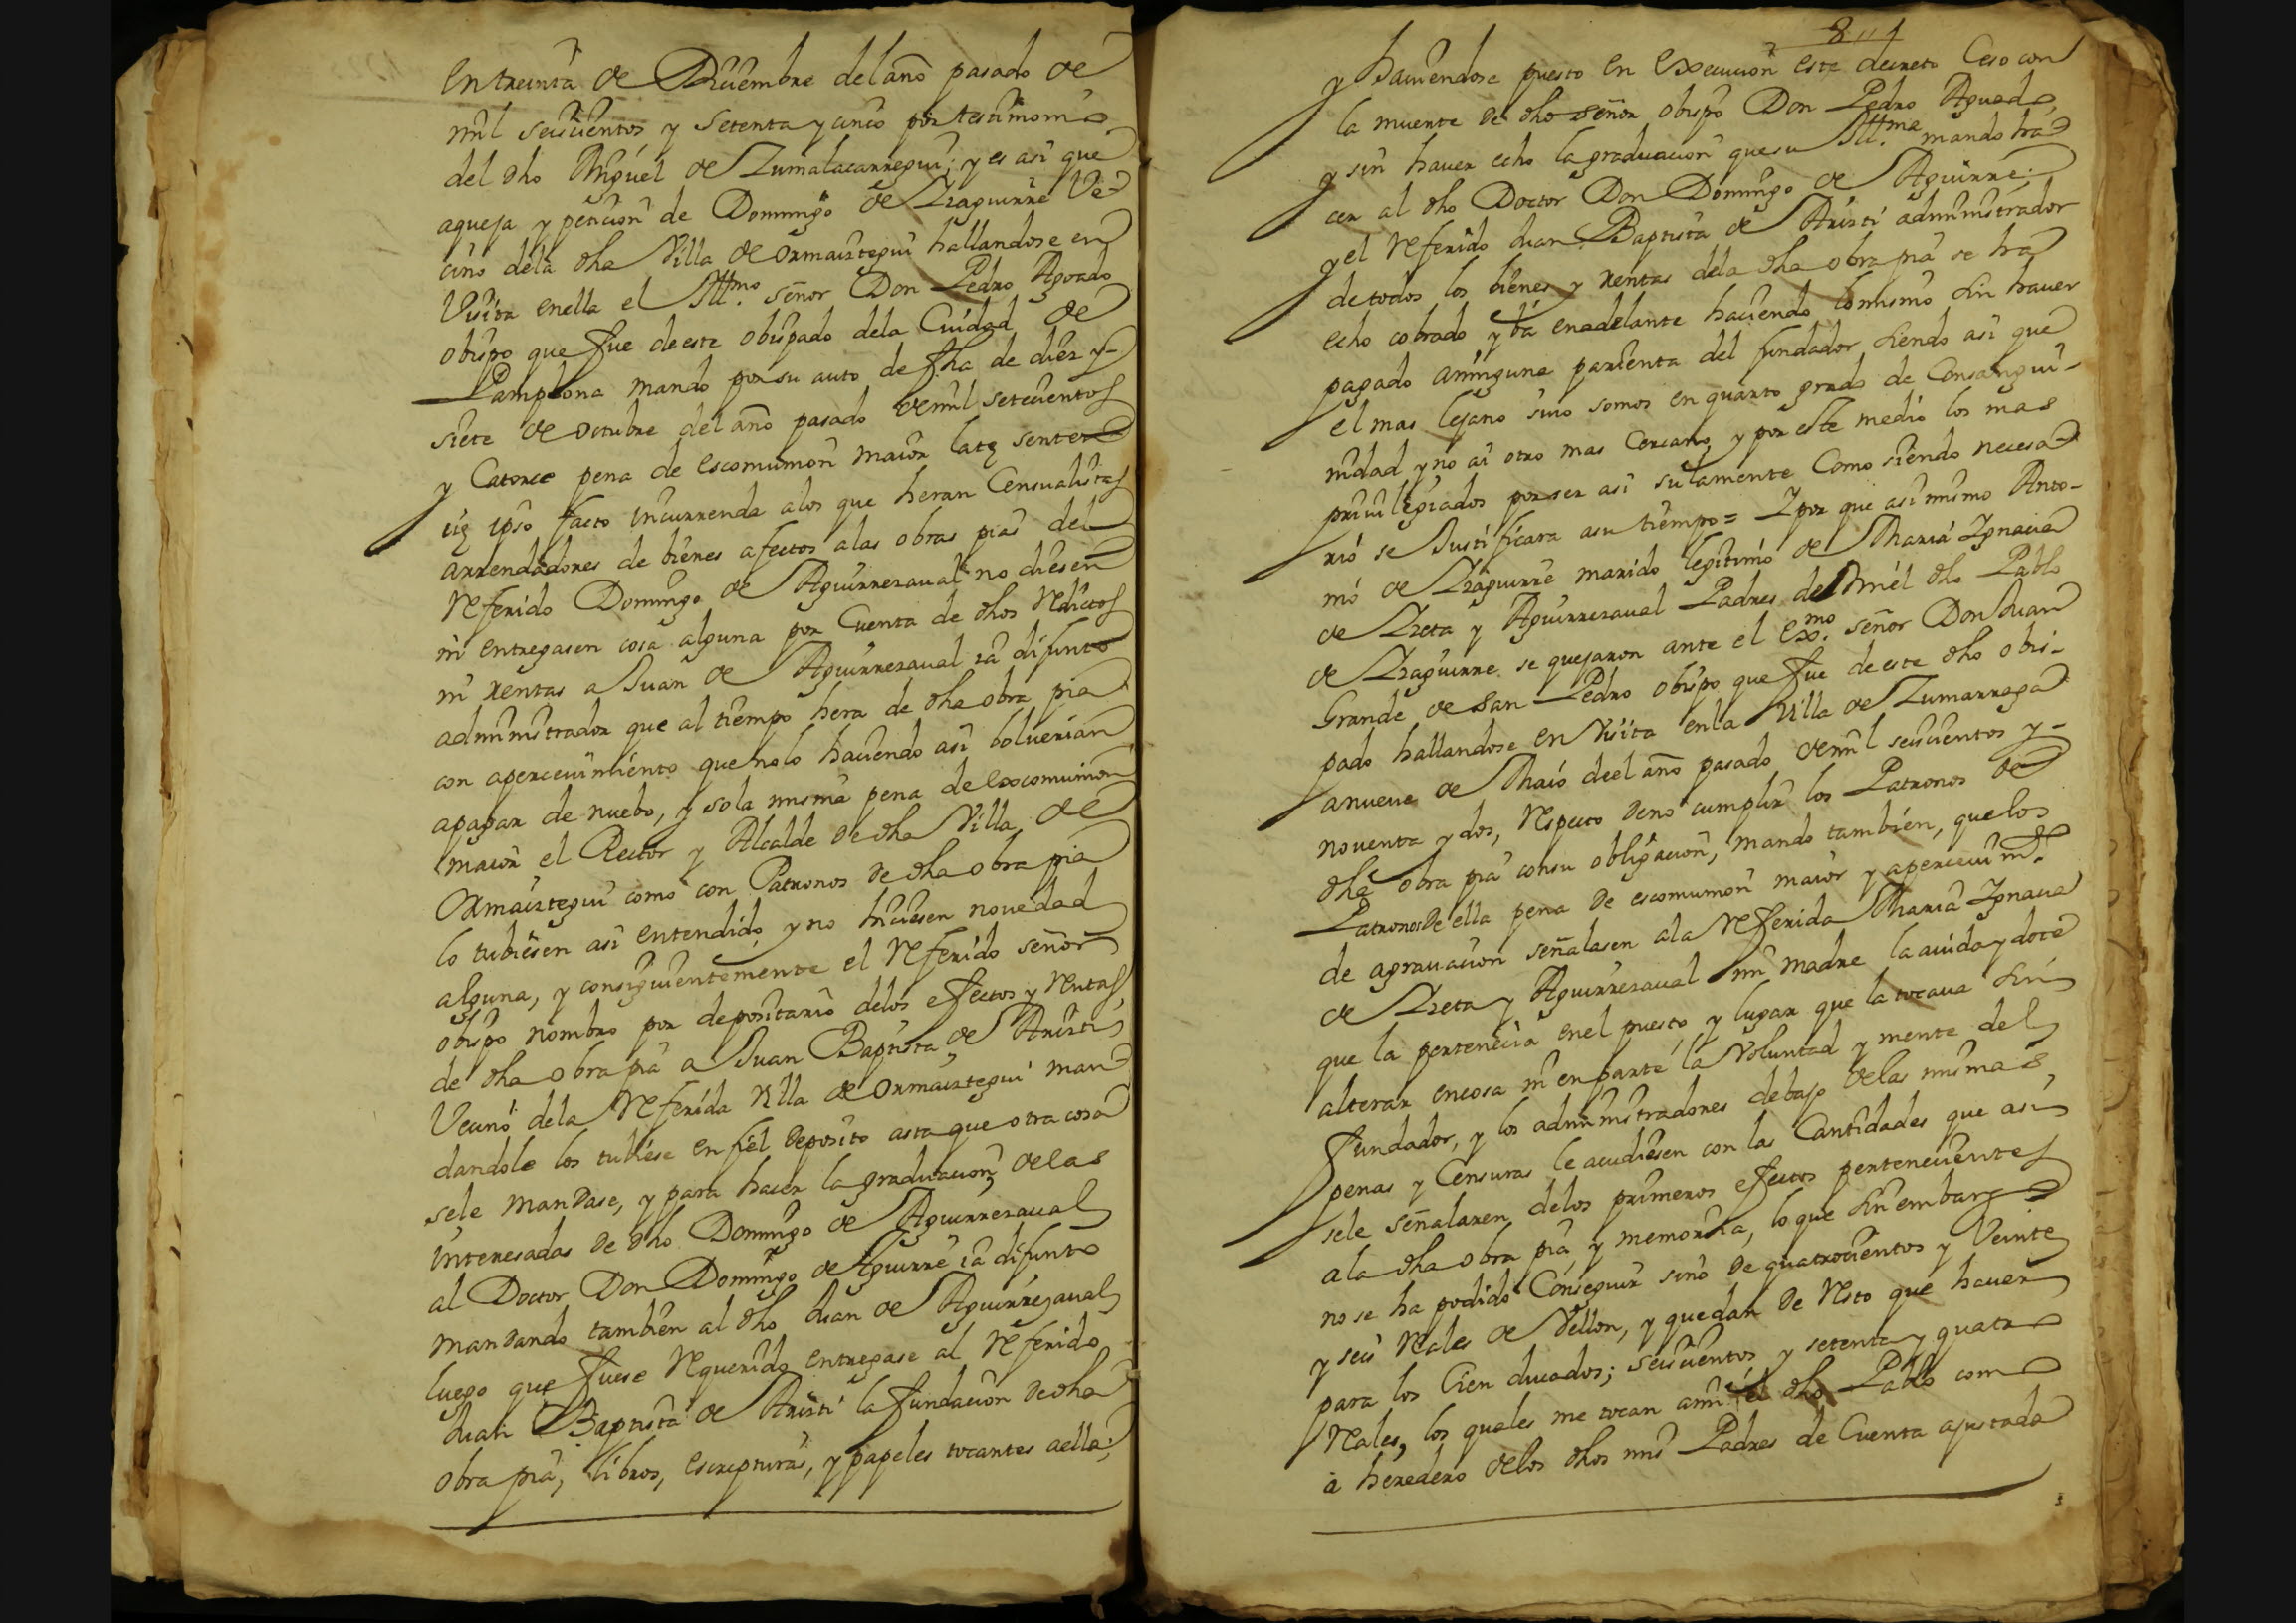 en treinta de Diciembre del año pasado de
mil seiscientos y Setenta y cinco por testimonio
del dho Miguel de Zumalacarregui; y es asi que
a queja y peticion de Domingo de Yzaguirre Ve-
cino de la dha Villa de Ormaiztegui hallandose en
Visita en ella el Illmo. señor Don Pedro Aguado
obispo que fue de este obispado de la Ciudad de
Pamplona mando por su auto de fha de diez y-
siete de octubre del año pasado de mil setecientos
y Catorce pena de escomunion maior late senten-
cie ipso facto incurrenda a los que heran Censualistas
arrendadores de bienes afectos a las obras pias del
Referido Domingo de Aguirrezaual no diesen
ni entregasen cosa alguna por Cuenta de dhos Reditos
ni rentas a Juan de Aguirrezaual ia difunto
administrador que al tiempo hera de dha obra pia
con apercevimiento que no lo haciendo asi bolverian
a pagar de nuebo, y so la misma pena de excomunion
maior el Rector y Alcalde de dha Villa de
Ormaiztegui como con Patronos de dha obra pia
lo tubiesen asi entendido y no hiciesen novedad
alguna, y consiguientemente el Referido señor
obispo nombro por depositario de los efectos y Rentas
de dha obra pia a Juan Baptista de Aristi
Vecino de la Referida Villa de Ormaiztegui man-
dandole los tubiese en fiel deposito asta que otra cosa
se le mandase, y para hacer la graduacion de las
interesadas de dho Domingo de Aguirrezaual
al Doctor Don Domingo de Aguirre ia difunto
mandando tambien al dho Juan de Aguirrezaual
luego que fuese Requerido entregase al Referido
Juan Baptista de Aristi la fundacion de dha
obra pia, libros, escripturas, y papeles tocantes a ella;
8
y haviendose puesto en execucion este decreto Ceso con
la muerte de dho señor obispo Don Pedro Aguado,
y sin haver echo la graduacion que su Illma. mando ha-
cer al dho Doctor Don Domingo de Aguirre;
y el Referido Juan Baptista de Aristi administrador
de todos los bienes y rentas de la dha obra pia se ha
echo cobrado y ba en adelante haciendo lo mismo sin haver
pagado a ninguna parienta del fundador siendo asi que
el mas lejano suio somos en quarto grado de Consangui-
nidad y no ai otro mas Cercano, y por este medio los mas
privilegiados por ser asi sulamente Como siendo necesa-
rio se Justificara a su tiempo = Y por que asi mismo Anto-
nio de Yzaguirre marido legitimo de Maria Ygnacia
de Yreta y Aguirrezaual Padres de mi el dho Pablo
de Yzaguirre se quejaron ante el Exmo. señor Don Juan
Grande de San Pedro obispo que fue de este dho obis-
pado hallandose en Visita en la Villa de Zumarraga
a nueve de Maio de el año pasado de mil seiscientos y-
noventa y dos, Respecto de no cumplir los Patronos de
dha obra pia con su obligacion, mando tambien, que los
Patronos de ella pena de escomunion maior y apercevimto.
de agravacion señalasen a la Referida Maria Ygnacia
de Yreta y Aguirrezaual mi madre la auida y dote
que la pertenecia en el puesto, y lugar que la tocaua sin
alterar en cosa ni en parte la Voluntad y mente del
fundador, y los administradores debajo de las mismas,
penas y Censuras le acudiesen con las Cantidades que asi
se le señalaren de los primeros efectos pertenecientes
a la dha obra pia, y memoria, lo que sin embargo
no se ha podido Conseguir sino de quatrocientos y Veinte
y seis Reales de Vellon, y quedan de Resto que haver
para los Cien ducados; seiscientos y setenta y quatro
Reales, los quales me tocan a mi el dho Pablo como
a heredero de los dhos mis Padres de Cuenta ajustada